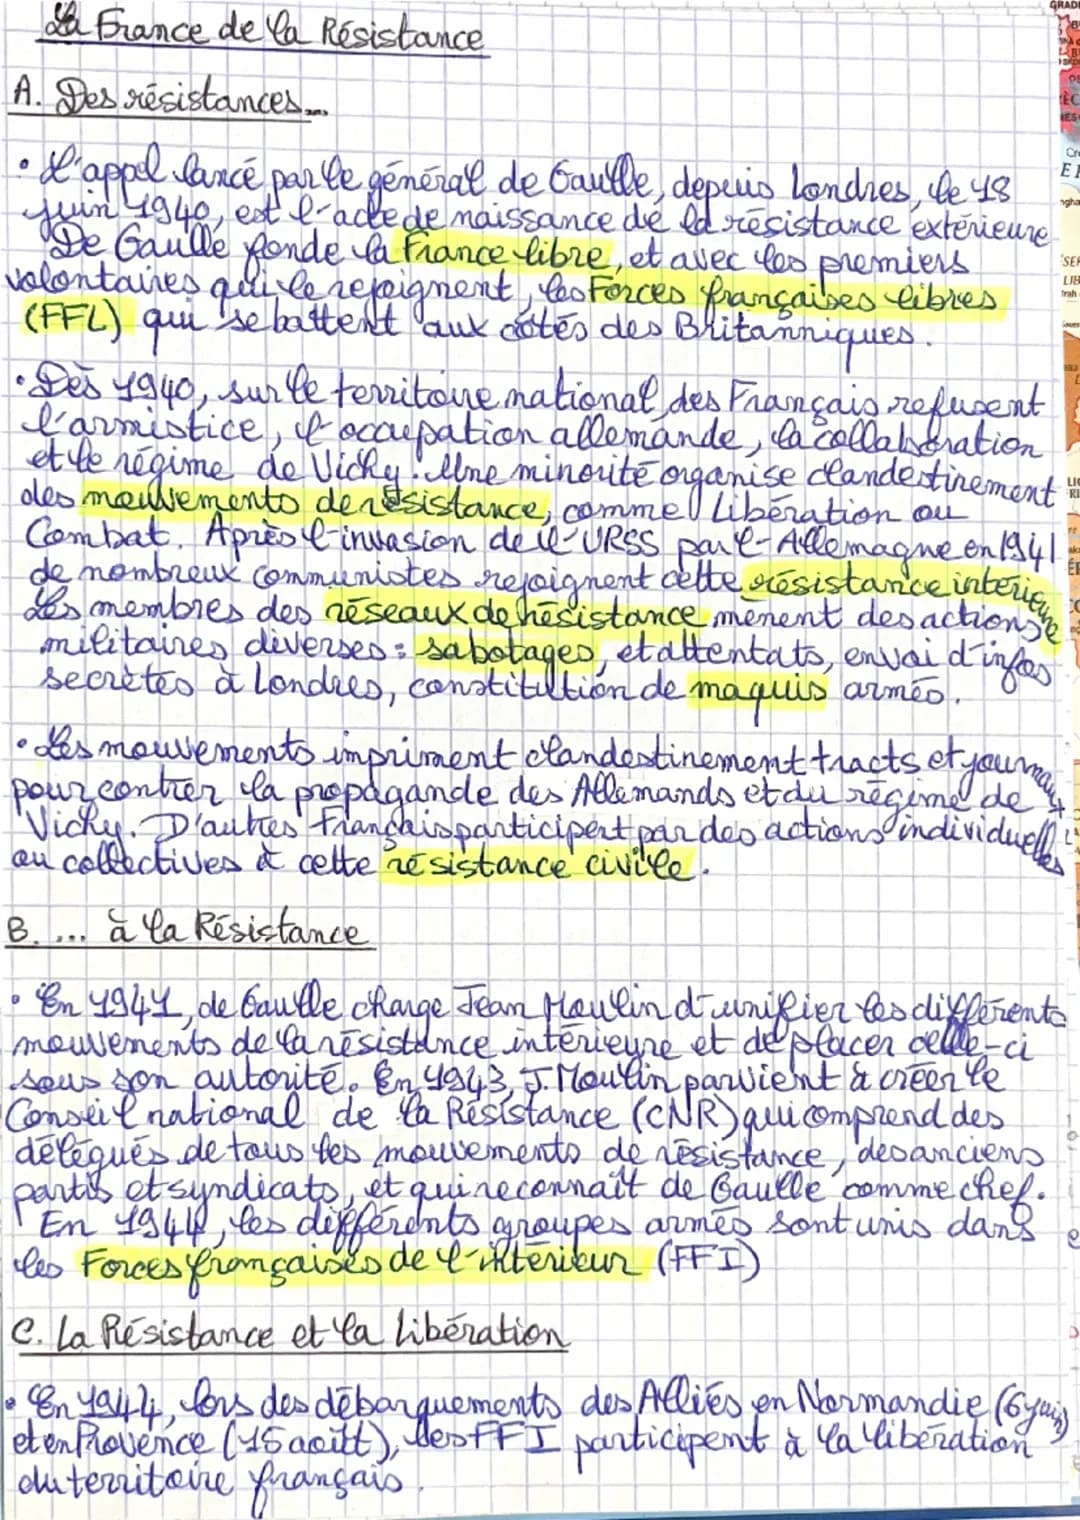 La France de la Résistance
A. Des résistances...
• L'appel lancé par le général de Gaulle, depuis Londres, le 18
juin 1940, est l'acte de naissance de la résistance extérieure
De Gaulle fonde la France libre, et avec les premiers
volontaires qui le rejoignent, les Forces françaises libres
(FFL) qui se battent aux côtés des Britanniques.
• Dès 1940, sur le territoire national, des Français refusent
l'armistice, l'occupation allemande, la collaboration
et le régime de Vichy. Une minorité organise clandestinement
des mouvements de résistance, comme Libération ou
Combat. Après l'invasion de l'URSS par l'Allemagne en 1941
de nombreux communistes rejoignent cette résistance intérieure
Les membres des réseaux de résistance mènent des actions
militaires diverses : sabotages, et attentats, envoi d'infos
secrètes à Londres, constitution de maquis armés.
• Les mouvements impriment clandestinement tracts et journaux
pour contrer la propagande des Allemands et du régime de
Vichy. D'autres Français participent par des actions individuelles
ou collectives à cette résistance civile.
B. ... à la Résistance
• En 1941, de Gaulle charge Jean Moulin d'unifier les différents
mouvements de la résistance intérieure et de placer celle-ci
sous son autorité. En 1943, J. Moulin parvient à créer le
Conseil national de la Résistance (CNR) qui comprend des
délégués de tous les mouvements de résistance, des anciens
partis et syndicats, et qui reconnaît de Gaulle comme chef.
En 1944, les différents groupes armés sont unis dans
les Forces françaises de l'intérieur (FFI)
C. La Résistance et la libération
• En 1944, lors des débarquements des Alliés en Normandie (6 juin)
et en Provence (15 août), les FFI participent à la libération
du territoire français.